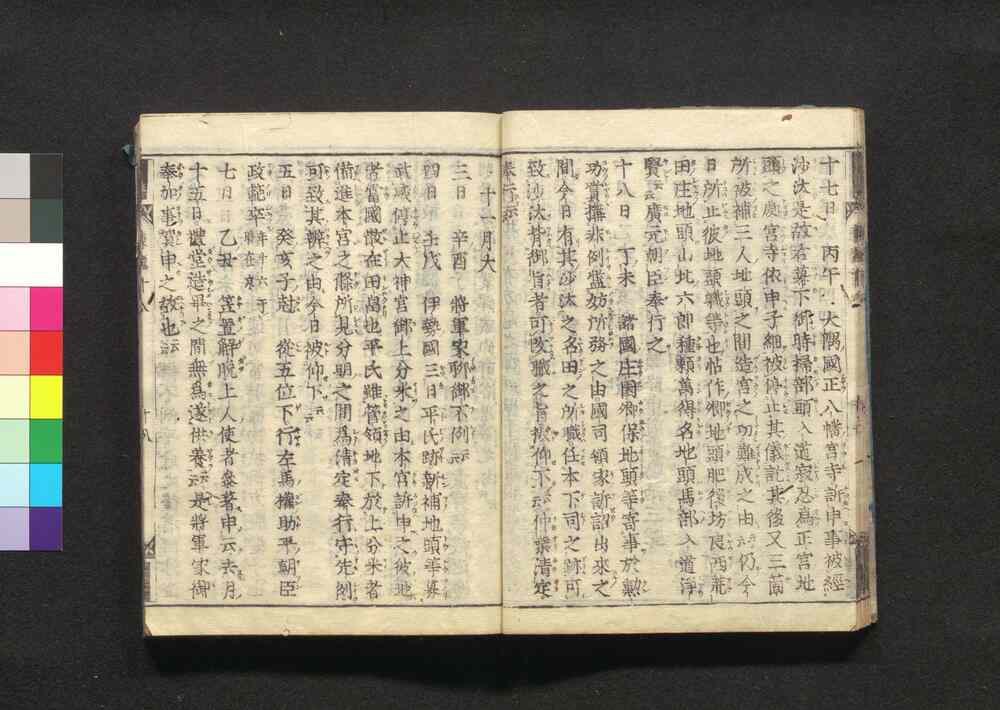 十七日 丙午 大隅國正八幡宮寺訴申事被經
沙汰是故右幕下御時掃部頭入道寂忍為正宮地
頭之處宮寺依申子細被停止其儀訖其後又三箇
所被補三人地頭之間造宮之功難成之由云仍今
日所止彼地頭職等也帖佐郷地頭肥後坊良西荒
田庄地頭山北六郎種頼萬得名地頭馬部入道浄
賢云廣元朝臣奉行之
十八日 丁未 諸國庄園郷保地頭等寄事於勲
功賞撫非例濫妨所務之由國司領家訴詔出來之
間今日有其沙汰之名田之所職任本下司之跡可
致沙汰背御旨者可改職之旨被仰下云仲業清定
奉行云
十一月大
三日 辛酉 將軍家聊御不例云
四日 壬戌 伊勢國三日平氏跡新補地頭等募
武威停止大神宮御上分米之由本宮訴申之彼地
者當國散在田畠也平氏雖管領地下於上分米者
備進本宮之條所見分明之間為清定奉行守先例
可致其辨之由今日被仰下云
五日 癸亥子尅 從五位下行左馬權助平朝臣
政範卒年十六于時在京
七日 乙丑 笠置解脱上人使者參著申云去月
十五日禮堂造畢之間無為遂供養云是將軍家御
奉加事冥申之故也云
十八